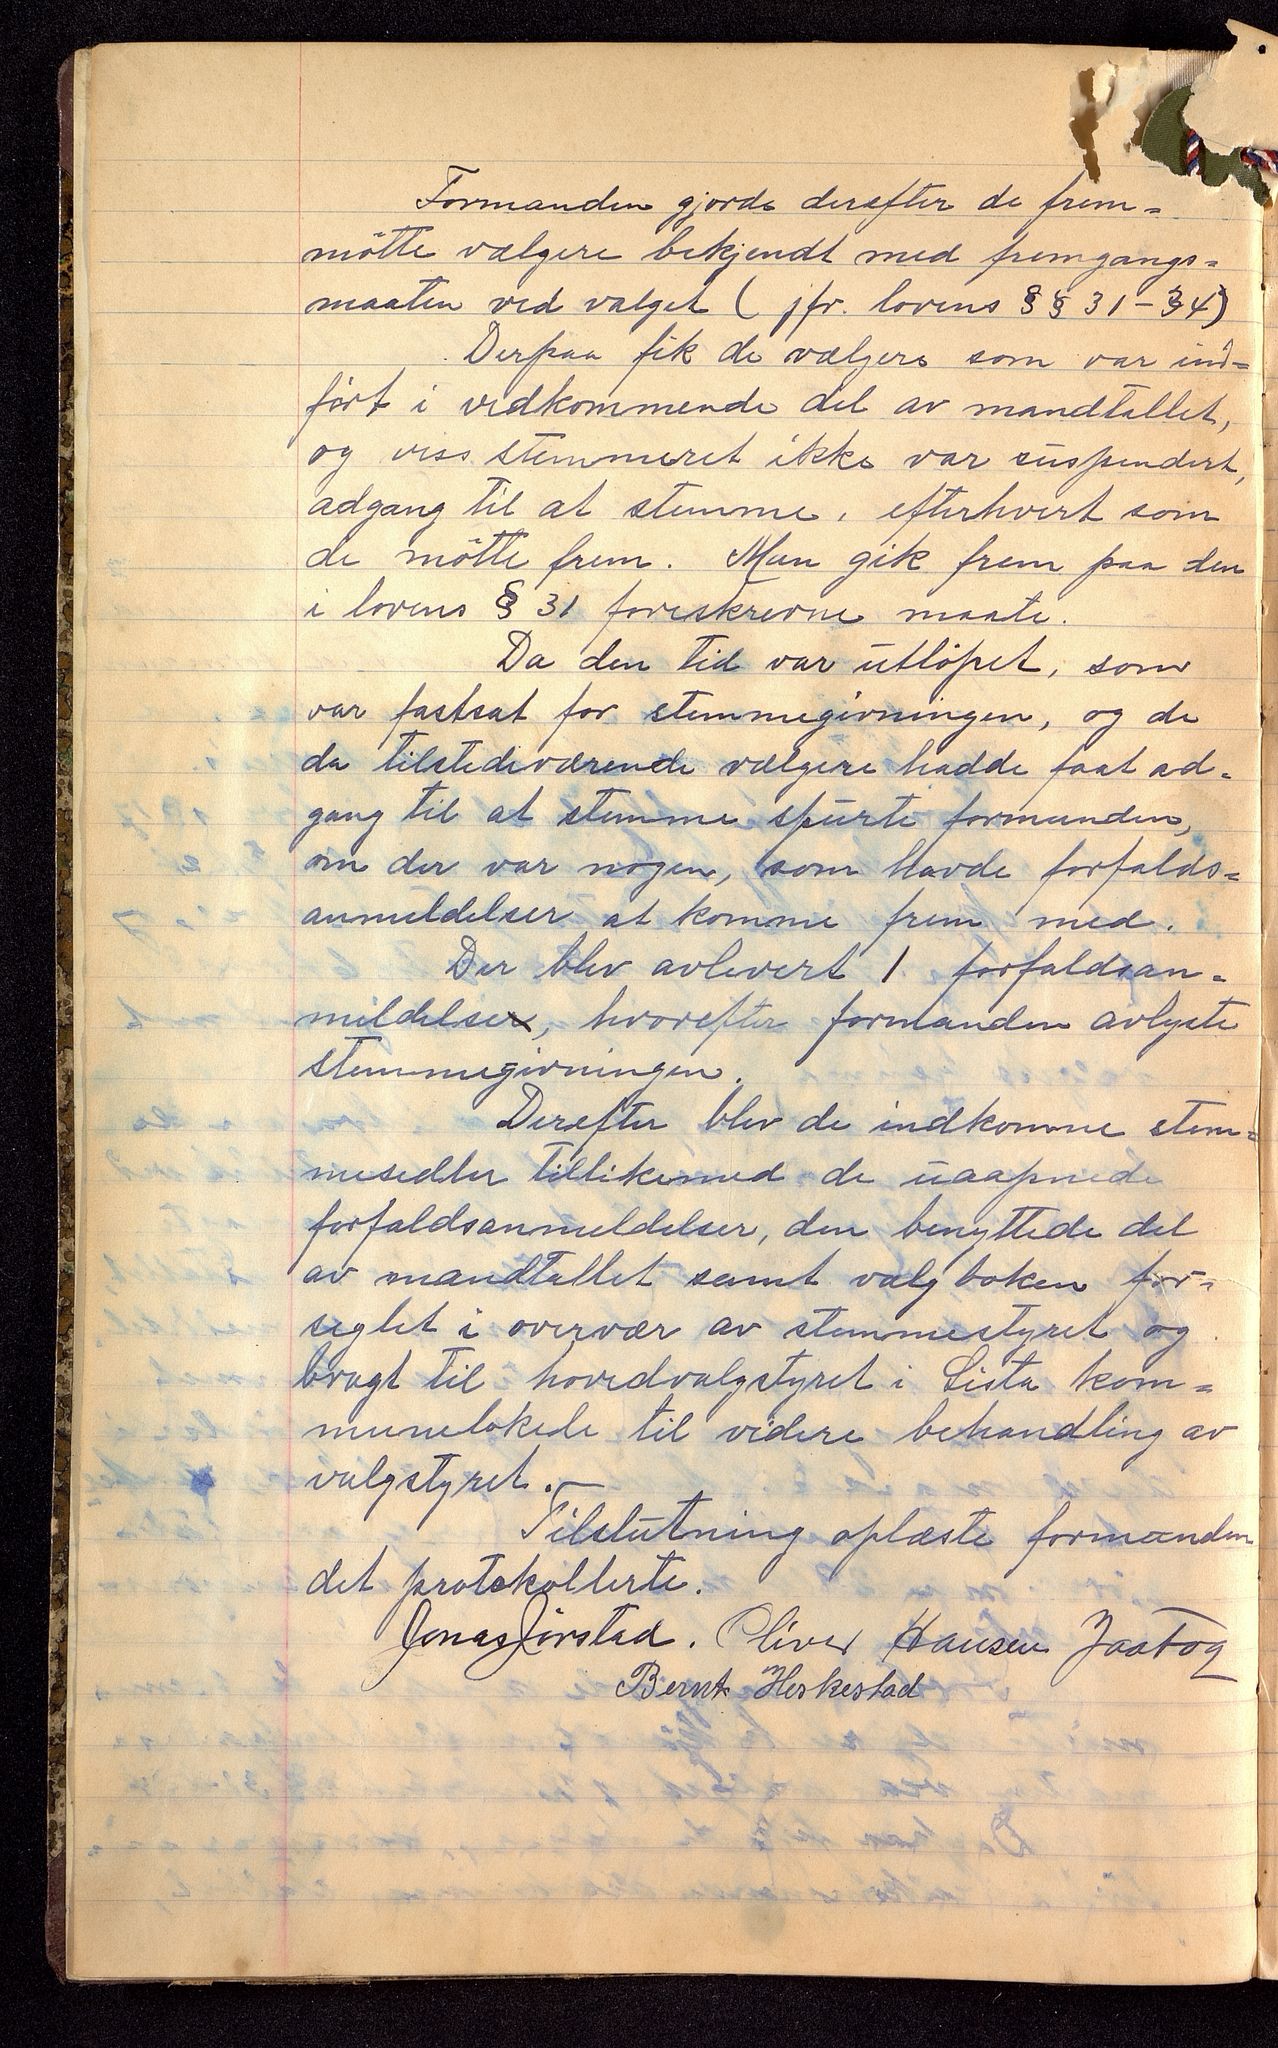 Formanden gjorde derefter de frem-
møtte vælgere bekjendt med fremgangs-
maaten ved valget ( jfr. lovens § § 31 – 34)
Derpaa fik de vælgere som var ind-
ført i vedkommende del av mandtallet,
og viss stemmeret ikke var suspendert,
adgang til at stemme, efterhvert som
de møtte frem. Man gik frem paa den
i lovens § 31 foreskrevne maate.
Da den tid var utløpet, som
var fastsat for stemmegivningen, og de
da tilstedeværende vælgere hadde faat ad-
gang til at stemme spurte formanden,
om der var nogen, som havde forfalds-
anmeldelser at komme frem med.
Der blev avlevert 1 forfaldsan-
meldelser, hvorefter formanden avlyste
stemmegivningen.
Derefter blev de indkomne stem-
mesedler tillikemed de uaapnede
forfaldsanmeldelser, den benyttede del
av mandtallet samt valgboken for-
seglet i overvær av stemmestyret og
bragt til hovedvalgstyret i Lista kom-
munelokale til videre behandling av
valgstyret.
Tilslutning oplæste formanden
det protokollerte.
Jonas Jørstad. Oliver Hansen Jaatog
Bernt Herkestad